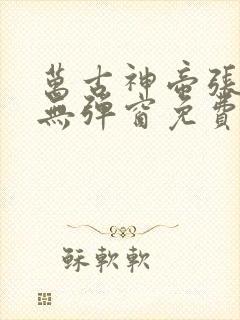 萬古神帝張
無彈窗免費
穌軟軟